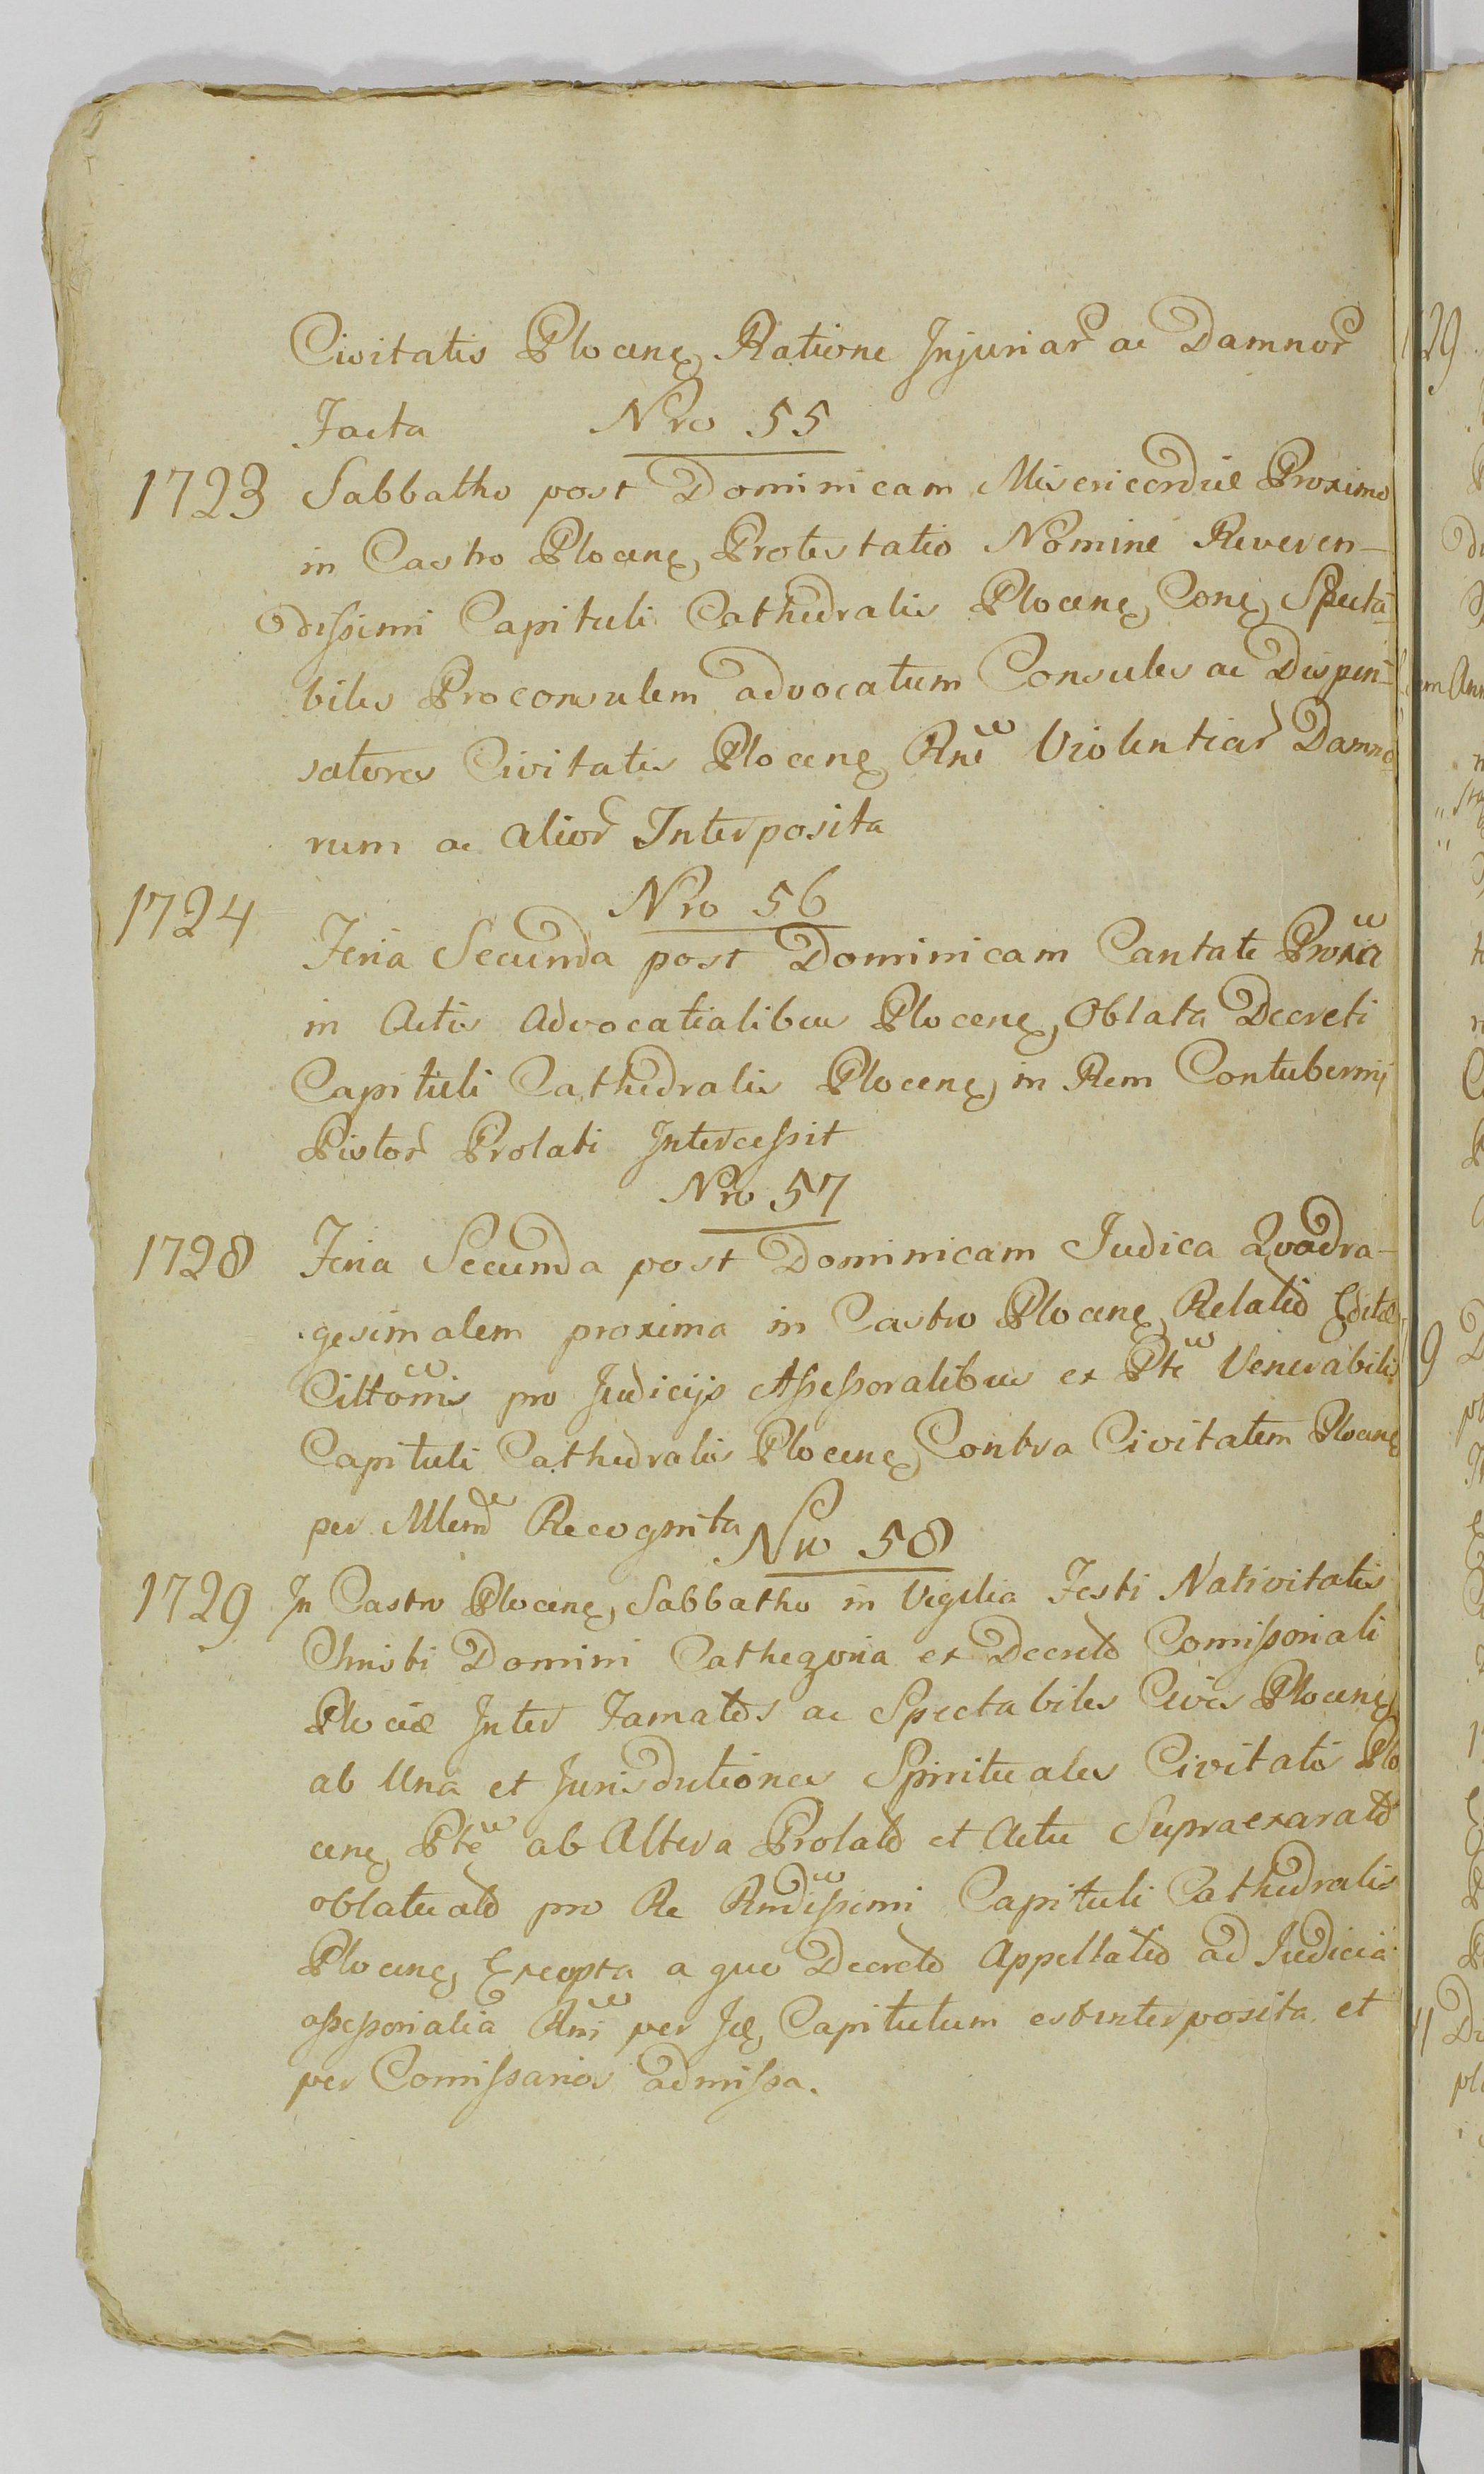 Civitatis Plocenę Ratione Injuriar ac Damnor
Facta Nro 55
1723 Sabbatho post Dominicam Misericordiæ Proximo
in Castro Plocenę Protestatio Nomine Reveren-
dissimi Capituli Cathedralis Plocenę Conę Specta-
biles Proconsulem advocatum Consules ac Dispen-
satores Civitatis Plocenę Rne Violentiar Damno
rum ac alior Interposita
Nro 56
1724 Feria Secunda post Dominicam Cantate Proxa
in Actis Advocatialibus Plocenę Oblata Decreti
Capituli Cathedralis Plocenę in Rem Contubernij
Pistor Prolati Intercessit
Nro 57
1728 Feria Secunda post Dominicam Judica Quadra-
gesimalem proxima in Castro Plocenę Relatio Editæ
Cittõnis pro Judicijs Assessoralibus ex Pte Venerabilis
Capituli Cathedralis Plocenę Contra Civitatem Plocenę
per Recognita Nro 58
1729 In Castro Plocenę Sabbatho in Vigilia Festi Nativitatis
Christi Domini Cathegoria ex Decreto Comissoriali
Plociæ Inter Famatos ac Spectabiles Cives Plocenę
ab Una et Jurisdictiones Spirituales Civitatis Plo
cenę Pte ab Altera Prolato et Actu Supraexarato
oblatuato pro Re Rndissimi Capituli Cathedralis
Plocenę Excepta a quo Decreto Appellatio ad Judicia
assessorialia Rni per Capitulum est interposita et
per Comissarios admissa.